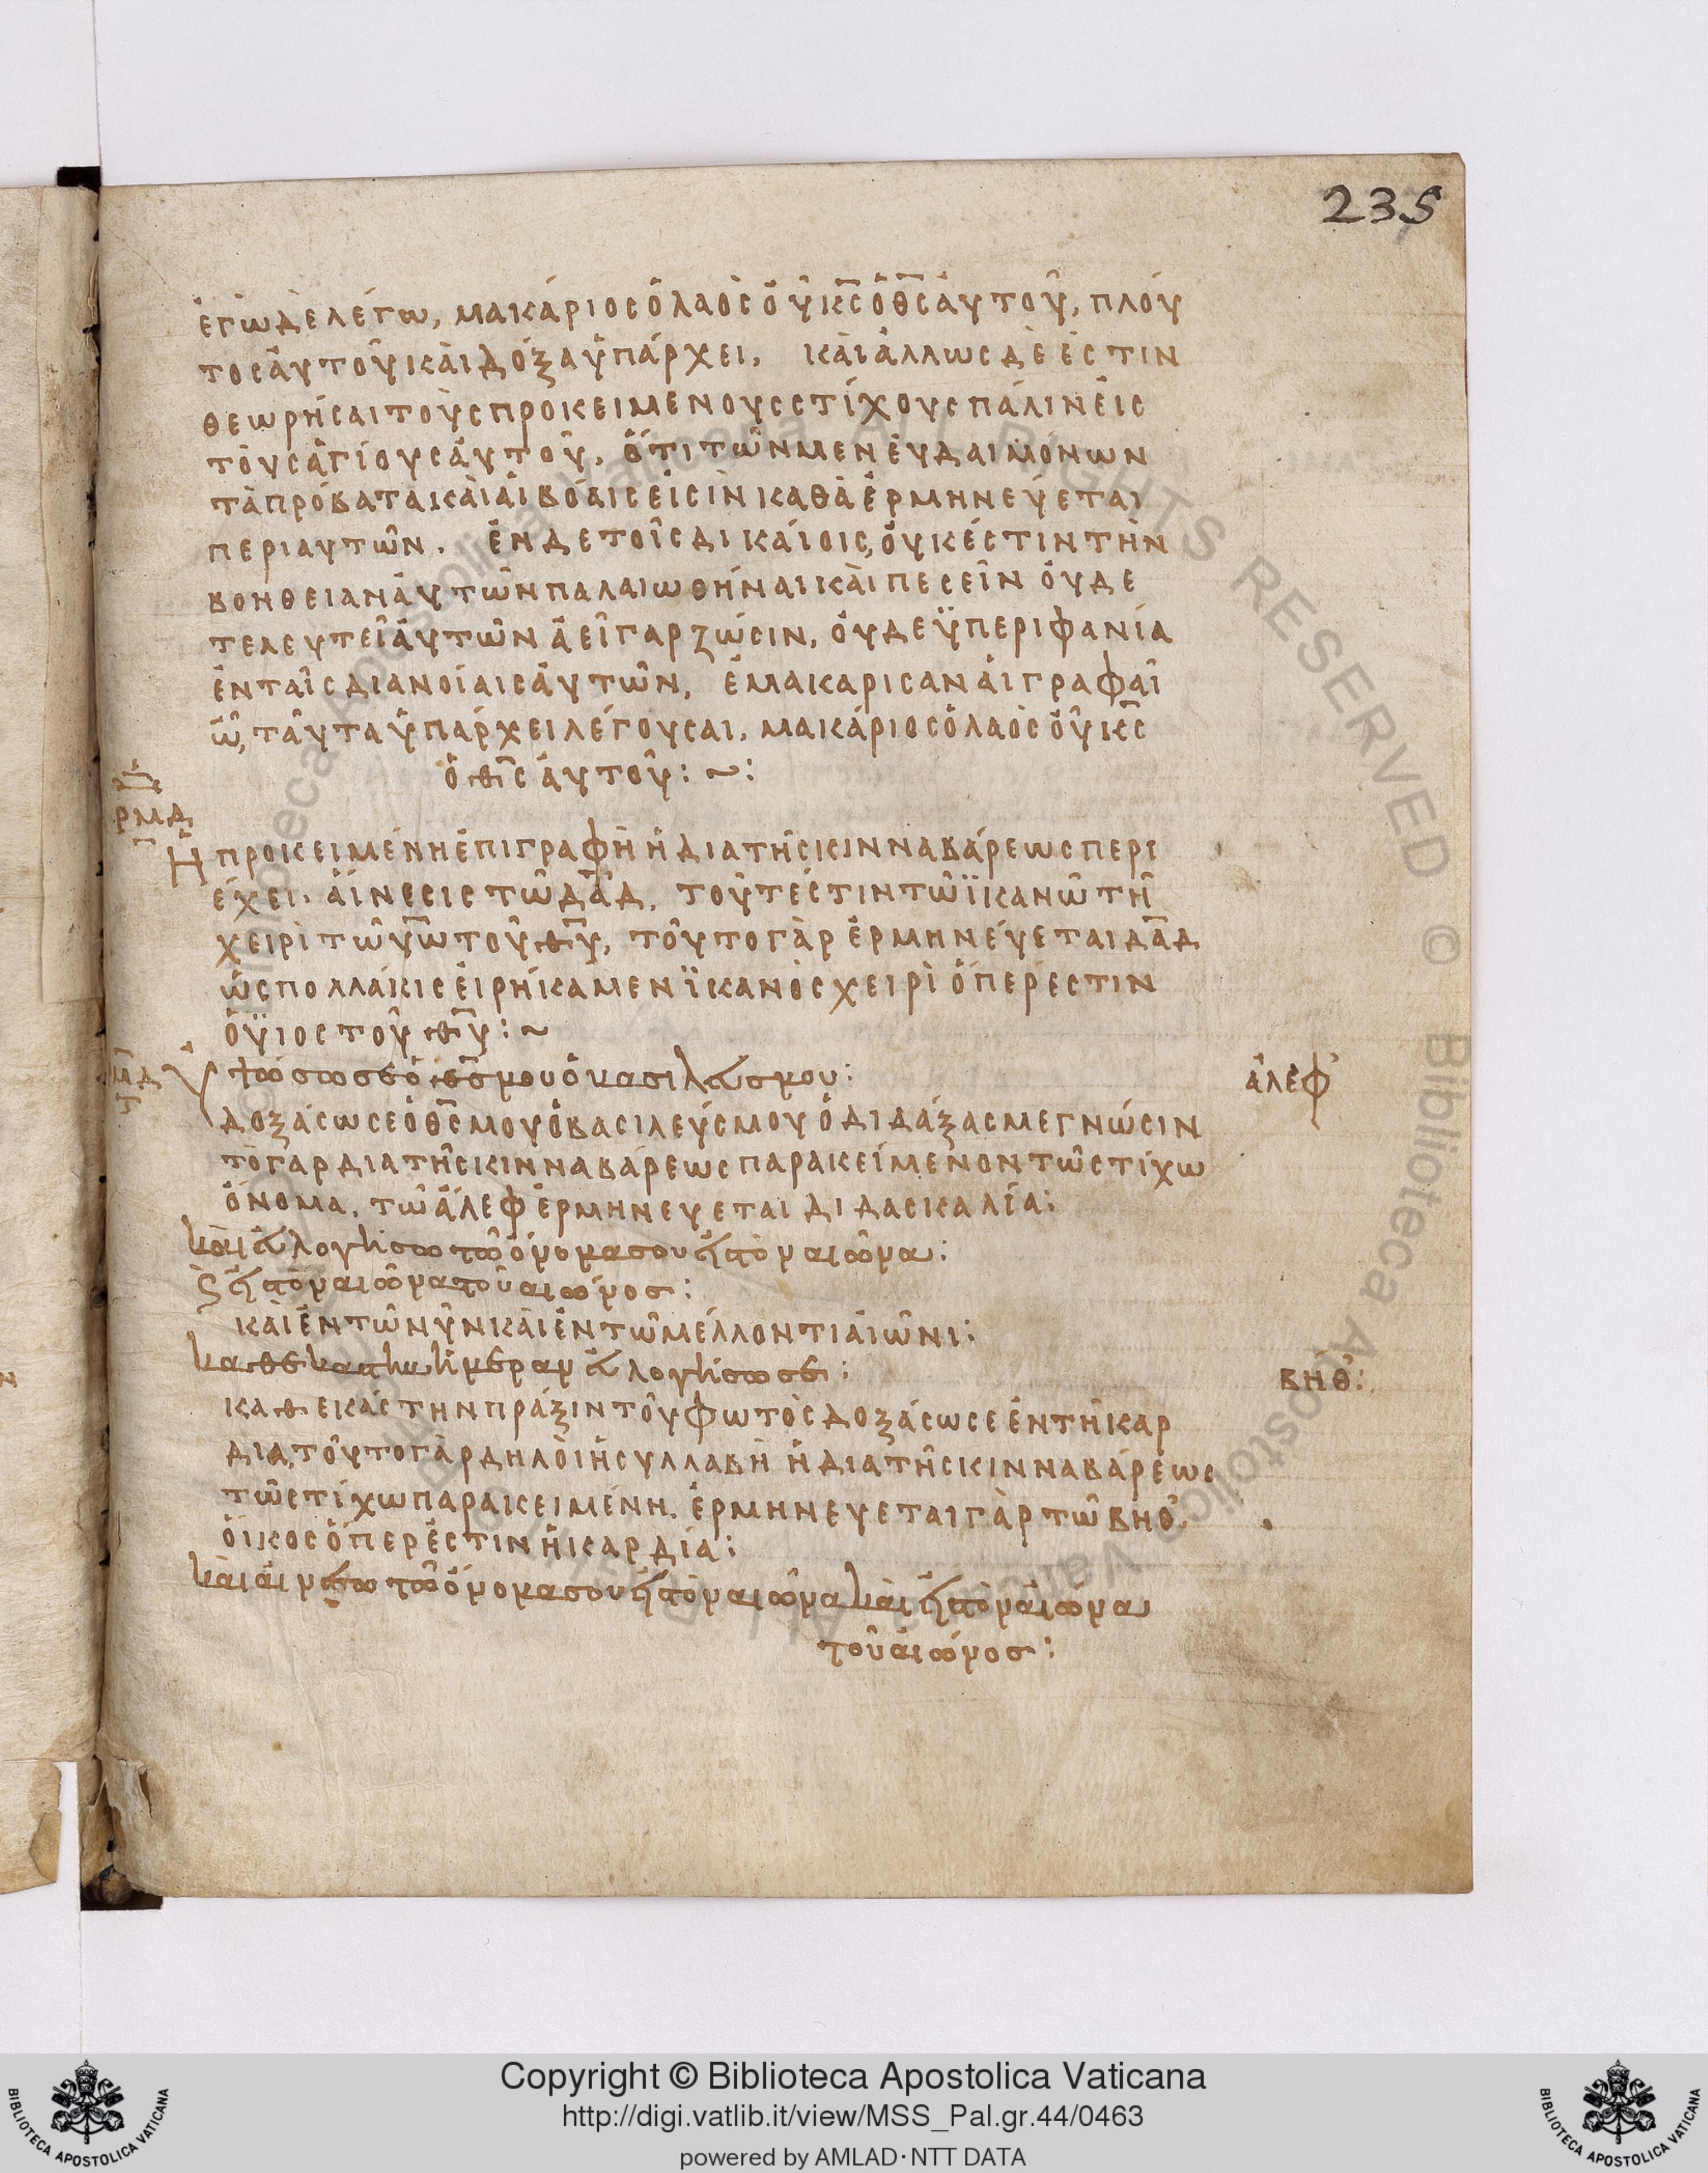 235
ἐγὼ δὲ λέγω, μακάριος ὁ λαὸς οὗ κ̅ς̅ ὁ θ̅ς̅ αὐτοῦ, πλοῦ
τος αὐτοῦ καὶ δόξα ὑπάρχει. καὶ ἄλλως δὲ ἐστιν
θεωρῆσαι τοὺς προκειμένους στίχους πάλιν εἰς
τοὺς ἁγίους αὐτοῦ. ὅτι τῶν μεν εὐδαιμόνων
τὰ πρόβατα καὶ αἱ βόαις εἰσὶν καθὰ ἑρμηνεύεται
περι αυτῶν. ἐν δε τοῖς δικαίοις, οὐκ έστιν τὴν
βοηθειαν αὐτῶν παλαιωθήναι καὶ πεσεῖν οὐδε
τελευτεῖ αὐτῶν ἀεῖ γαρ ζώσιν, οὐδε ὑπεριφανία
ἐν ταῖς διανοίαις αὐτῶν, ἐμακαρισαν αἱ γραφαῖ
ὧ, ταῦτα ὑπάρχει λέγουσαι. μακάριος ὁ λαὸς οὗ κ̅ς̅
ὁ θ̅ς̅ αὐτοῦ: ~:
ρμδ
Ἡ προκειμένη ἐπιγραφὴ ἡ δια τῆς κινναβάρεως περι
έχει. αἵνεσις τῶ δ̅α̅δ̅. τοῦτέστιν τῶ ἵκανῶ τῆ
χειρὶ τῶ υ̅ω̅ τοῦ θ̅υ̅, τοῦτο γὰρ ἑρμηνεύεται δ̅α̅δ̅
ὡς πολλάκις εἰρήκαμεν ἵκανὸς χειρὶ ὅπερ έστιν
ὁ ὑιος τοῦ θ̅υ̅: ~
Υψώσω σε ὁ θ̅ς̅ μου ὁ βασιλεύς μου:
ἄλεφ
δοξάσω σε ὁ θ̅ς̅ μου ὁ βασιλεύς μου ὁ διδάξας με γνώσιν
τὸ γαρ δια τῆς κινναβάρεως παρακείμενον τῶ στίχω
ὄνομα. τῶ ἄλεφ ἑρμηνευεται διδασκαλία:
καὶ εὐλογήσω τῶ ὄνομα σου εἰς τὸν αιῶνα:
ϛ εἰς τὸν αιῶνα τοῦ αιώνος:
καὶ ἐν τῶ νῦν καὶ ἐν τῶ μέλλοντι αἰῶνι:
καθ εκαστην ἡμέραν εὐλογήσω σε:
βὴθ:
καθ εκάστην πράξιν τοῦ φωτὸς δοξάσω σε ἐν τῆ καρ
δια, τοῦτο γὰρ δηλοὶ ἡ συλλαβὴ ἡ δια τῆς κινναβάρεως
τῶ στίχω παρακειμένη. ἑρμηνευεται γὰρ τῶ βὴθ
οἶκος ὅπερ ἐστιν ἡ καρδία:
καὶ αἰνέσω τῶ ὄνομα σου εἰς τὸν αιῶνα καὶ εἰς τὸν αἰώνα
τοῦ αἰώνος:
Copyright © Biblioteca Apostolica Vaticana
http://digi.vatlib.it/view/MSS_Pal.gr.44/0463
powered by AMLAD·NTT DATA
BIBLIOTECA APOSTOLICA VATICANA
BIBLIOTECA APOSTOLICA VATICANA